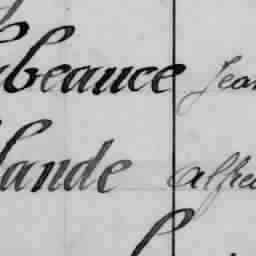 beauce Jean
lande Alfre